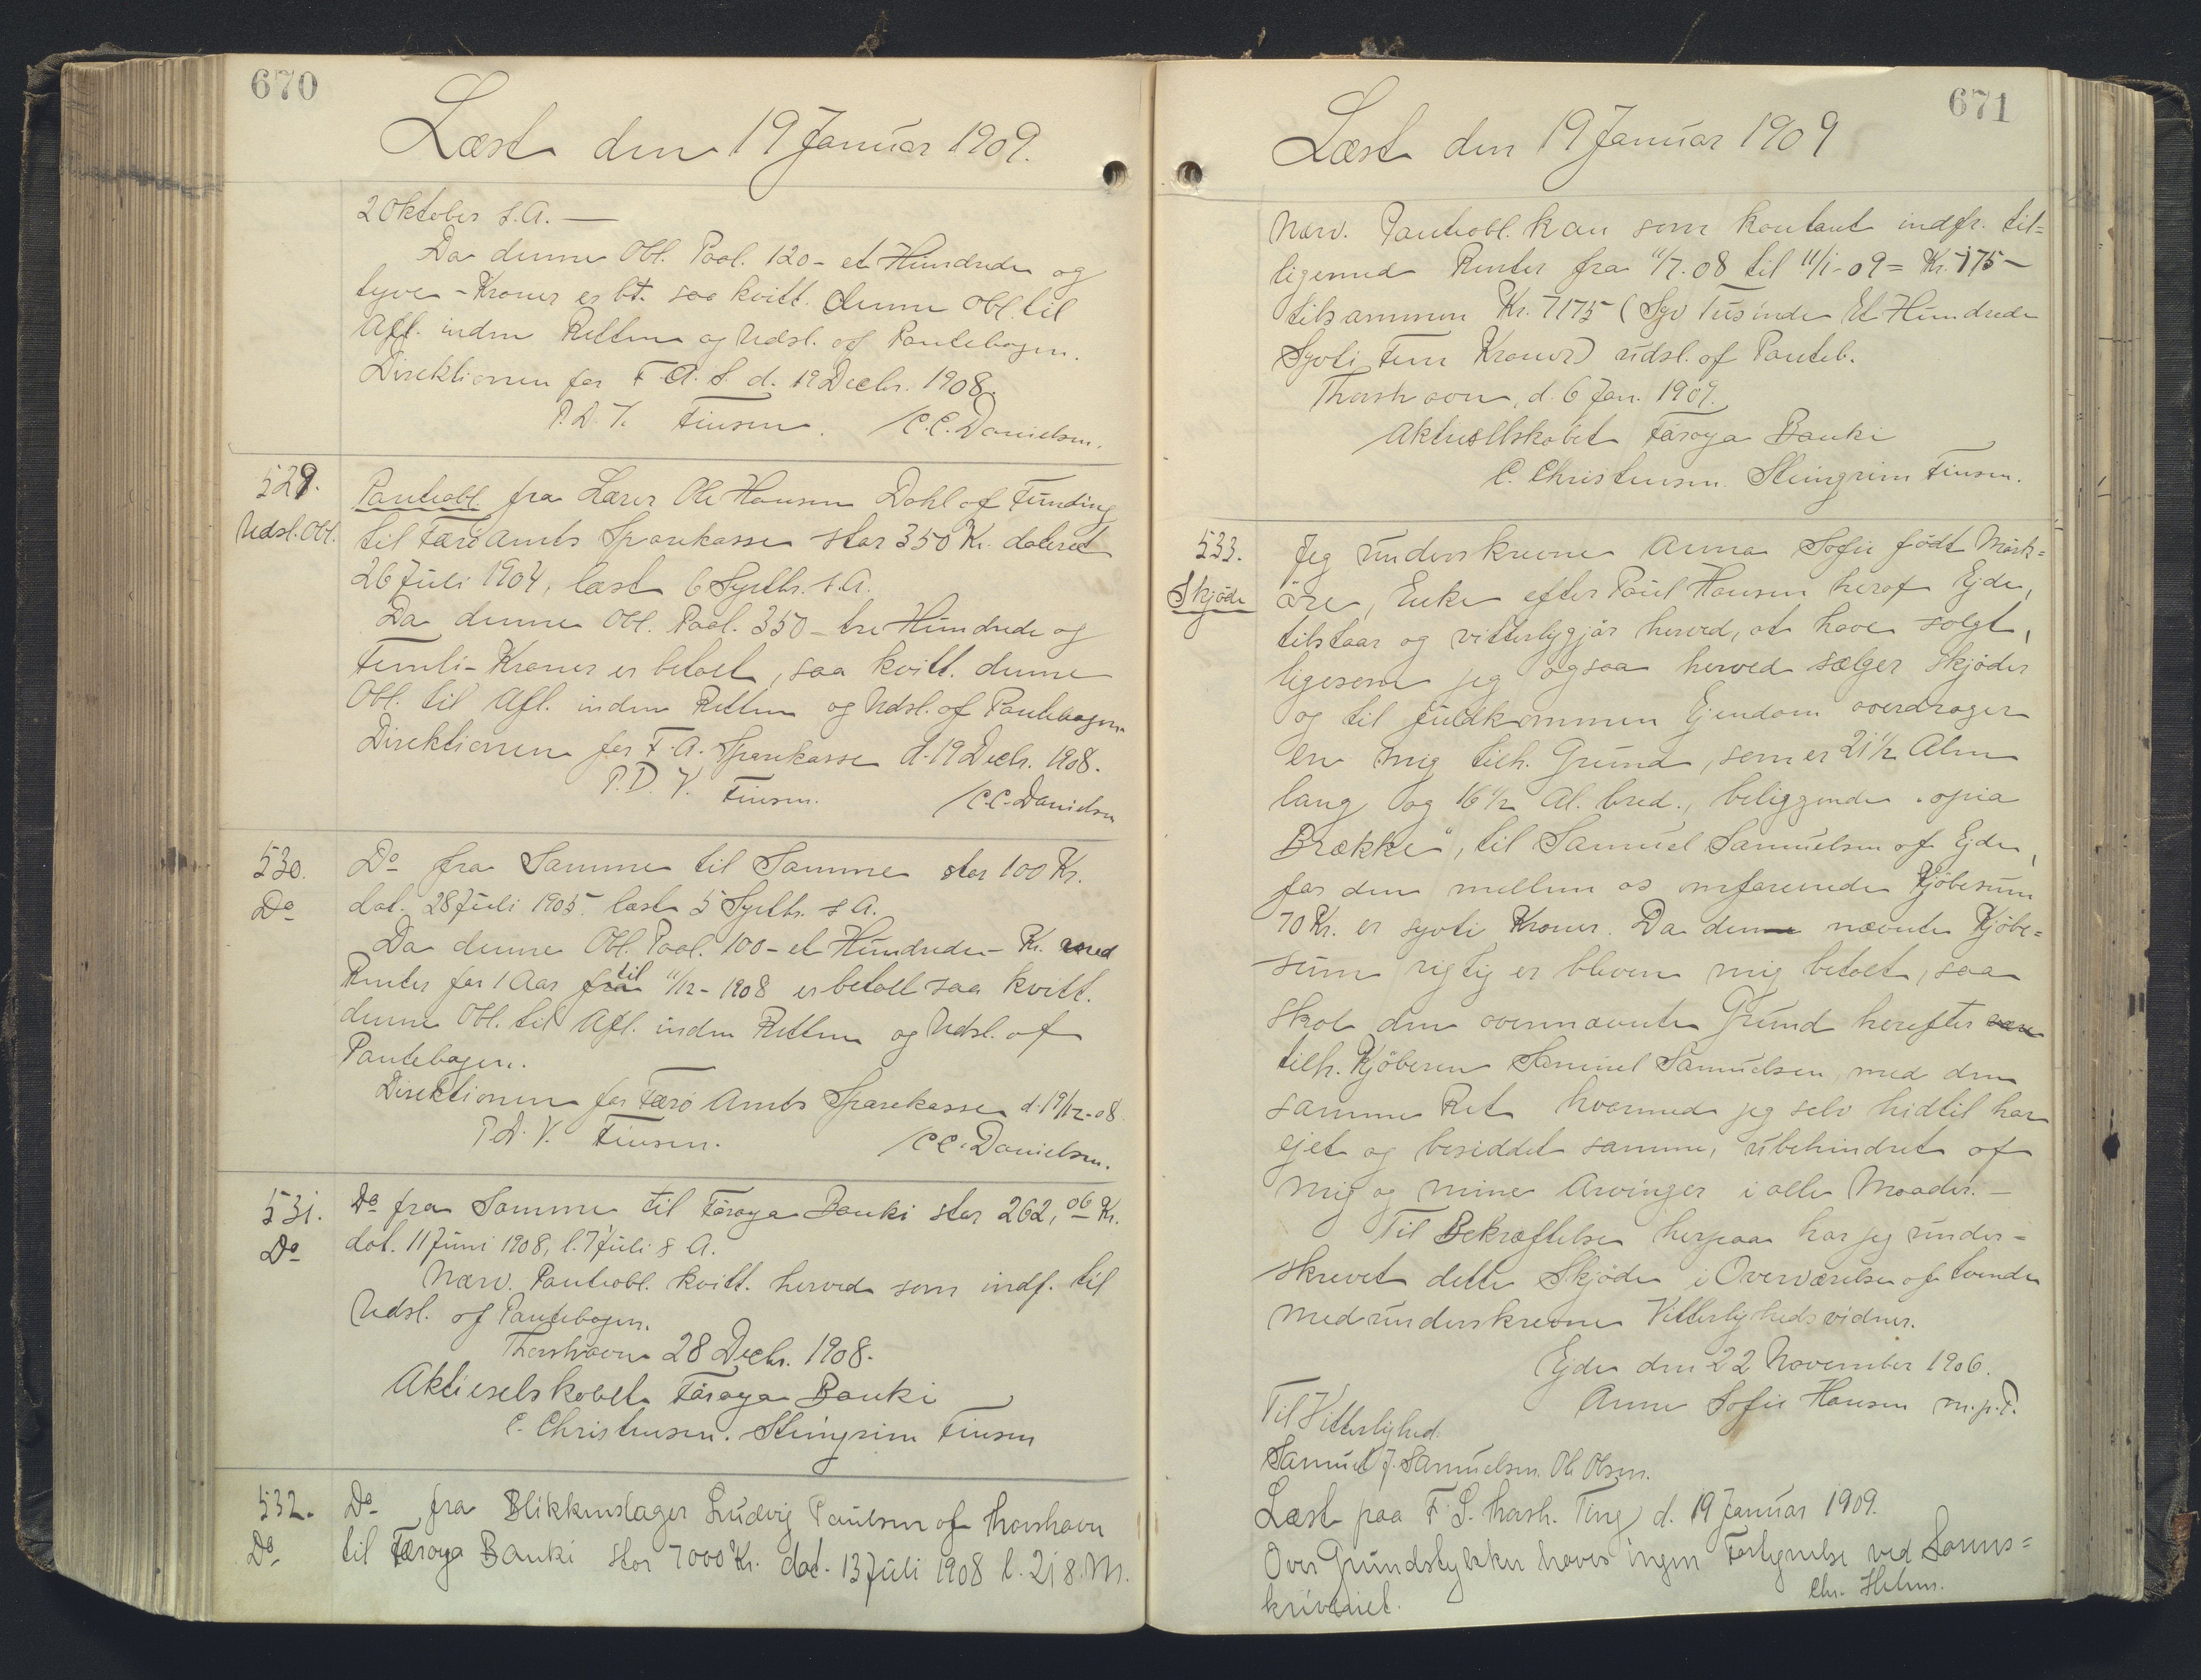 670
Læst den 19 Januar 1909.
2 Oktober s.A. —
Da denne Obl. Paal. 120 - et Hundrede og
tyve - Kroner er bt. saa kvitt. denne Obl. til
Afl. inden Retten og Udsl. af Pantebogen.
Direktionen for F. A. S. d. 19 Decbr. 1908.
P.D.V. Finsen. / C.C. Danielsen.
529.
Udsl. Obl.
Panteobl. fra Lærer Ole Hansen Dahl af Funding
til Færø Amts Sparekasse stor 350 Kr. dateret
26 Juli 1904, læst 6 Septbr. s.A.
Da denne Obl. Paal. 350 - tre Hundrede og
Femti - Kroner er betalt, saa kvitt. denne
Obl. til Afl. inden Retten og Udsl. af Pantebogen
Direktionen for F. A. Sparekasse d. 19 Decbr. 1908.
P.D.V. Finsen. / C.C. Danielsen
530.
Do
Do fra Samme til Samme stor 100 Kr.
dat. 28 Juli 1905. læst 5 Septbr. s A.
Da denne Obl. Paal. 100 - et Hundrede - Kr. med
Renter for 1 Aar fra til 11/12 - 1908 er betalt saa kvitt.
denne Obl. til Afl. inden Retten og Udsl. af
Pantebogen.
Direktionen for Færø Amts Sparekasse d. 19/12-08.
P.D.V. Finsen. / C.C. Danielsen.
531.
Do
Do fra Samme til Føroya Banki stor 262,06 Kr.
dat. 11 Juni 1908, l. 7 Juli s A.
Nærv. Panteobl. kvitt. herved som indf. til
Udsl. af Pantebogen.
Thorshavn 28 Decbr. 1908.
Aktieselskabet Føroya Banki
C. Christensen. Steingrim Finsen
532.
Do
Do fra Blikkenslager Ludvig Poulsen af Thorshavn
til Føroya Banki stor 7000 Kr. dat. 13 Juli 1908 l. 21 s. M.
671
Læst den 19 Januar 1909
Nærv. Panteobl. kan som kontant indfr. til=
ligemed Renter fra 11/7.08 til 11/1-09 = Kr. 175 -
tilsammen Kr. 7175 (Syv Tusinde Et Hundrede
Syvti Fem Kroner) udsl. af Panteb.
Thorshavn, d. 6 Jan. 1909.
Aktieselskabet Føroya Banki
C. Christensen. Steingrim Finsen.
533.
Skjøde
Jeg underskrevne Anna Sofie født Mørk=
øre, Enke efter Poul Hansen heraf Ejde,
tilstaar og vitterliggjør herved, at have solgt,
ligesom jeg ogsaa herved sælger skjøder
og til fuldkommen Ejendom overdrager
en mig tilh. Grund, som er 21 1/2 Alen
lang og 16 1/2 Al. bred, beliggende "opia
Brække", til Samuel Samuelsen af Ejde,
for den mellem os omforenede Kjøbesum
70 Kr. er syvti Kroner. Da den nævnte Kjøbe=
sum rigtig er bleven mig betalt, saa
skal den ovennævnte Grund herefter være
tilh. Kjøberen Samuel Samuelsen, med den
samme Ret hvormed jeg selv hidtil har
ejet og besiddet samme, ubehindret af
mig og mine Arvinger i alle Maader. —
Til Bekræftelse herpaa har jeg under=
skrevet dette Skjøde i Overværelse af tvende
medunderskrevne Vitterlighedsvidner.
Ejde den 22 November 1906.
Anne Sofie Hansen m.p.P.
Til Vitterlighed.
Samuel J. Samuelsen. Ole Olsen.
Læst paa F. S. Thorsh. Ting d. 19 Januar 1909.
Over Grundstykket haves ingen Forlignelse ved Sorens=
kriveriet. Chr. Holm.